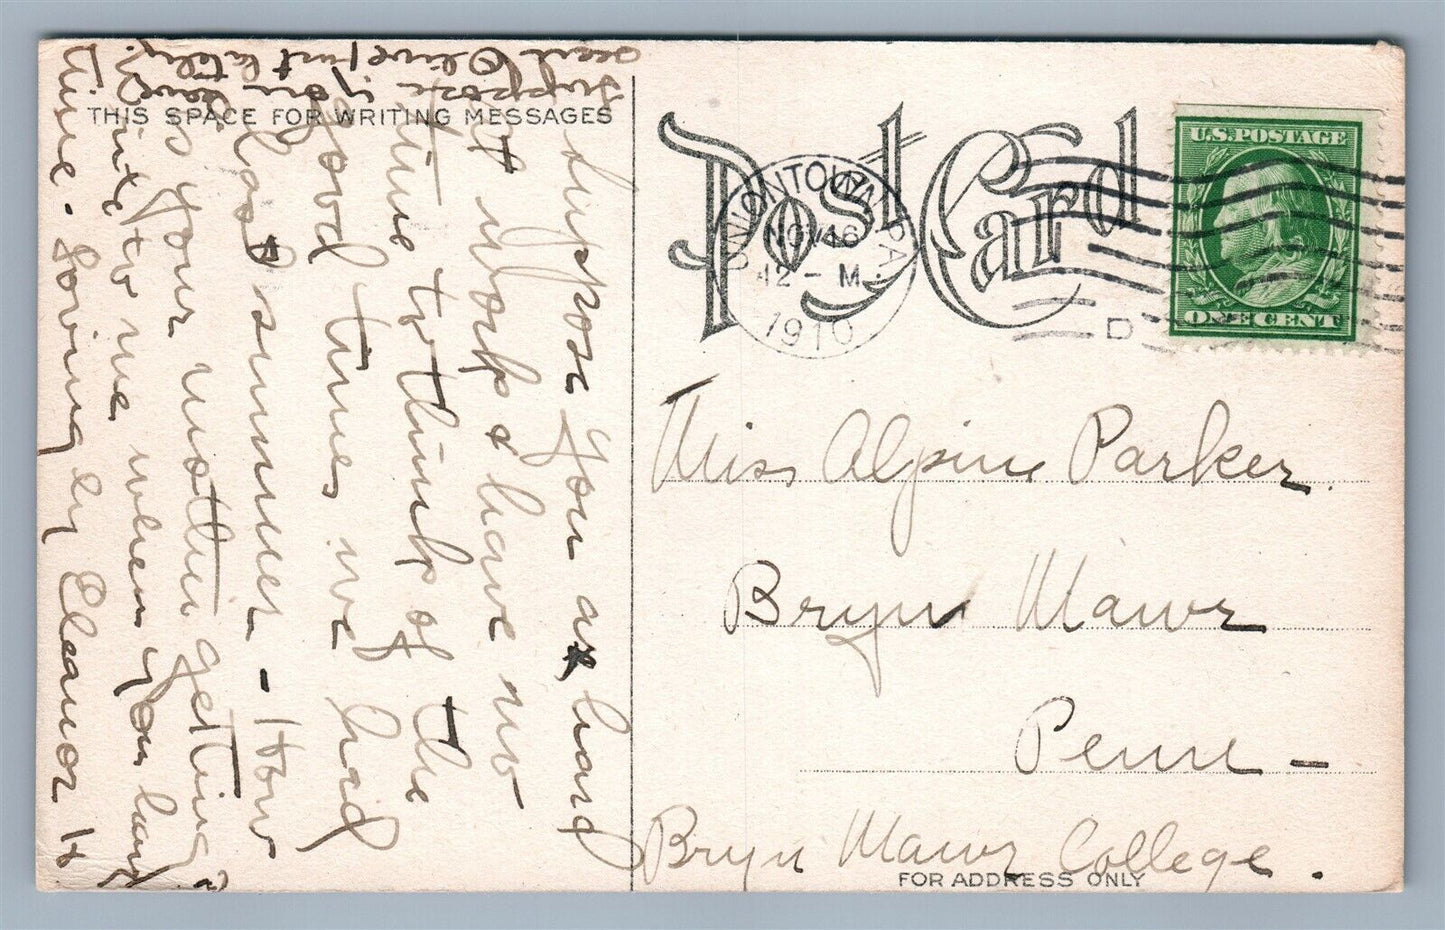 THIS SPACE FOR WRITING MESSAGES
Suppose you are hard
at work & have no
time to think of the
good times we had
last summer - How
is your mother getting?
write to me when you have
time. Loving ly Eleanor H
suppose you have
seen Olive lately?
Post Card
UNIONTOWN PA.
NOV 16
12 - M.
1910
D
U.S. POSTAGE
ONE CENT
Miss Alpine Parker.
Bryn Mawr
Penn -
Bryn Mawr College.
FOR ADDRESS ONLY